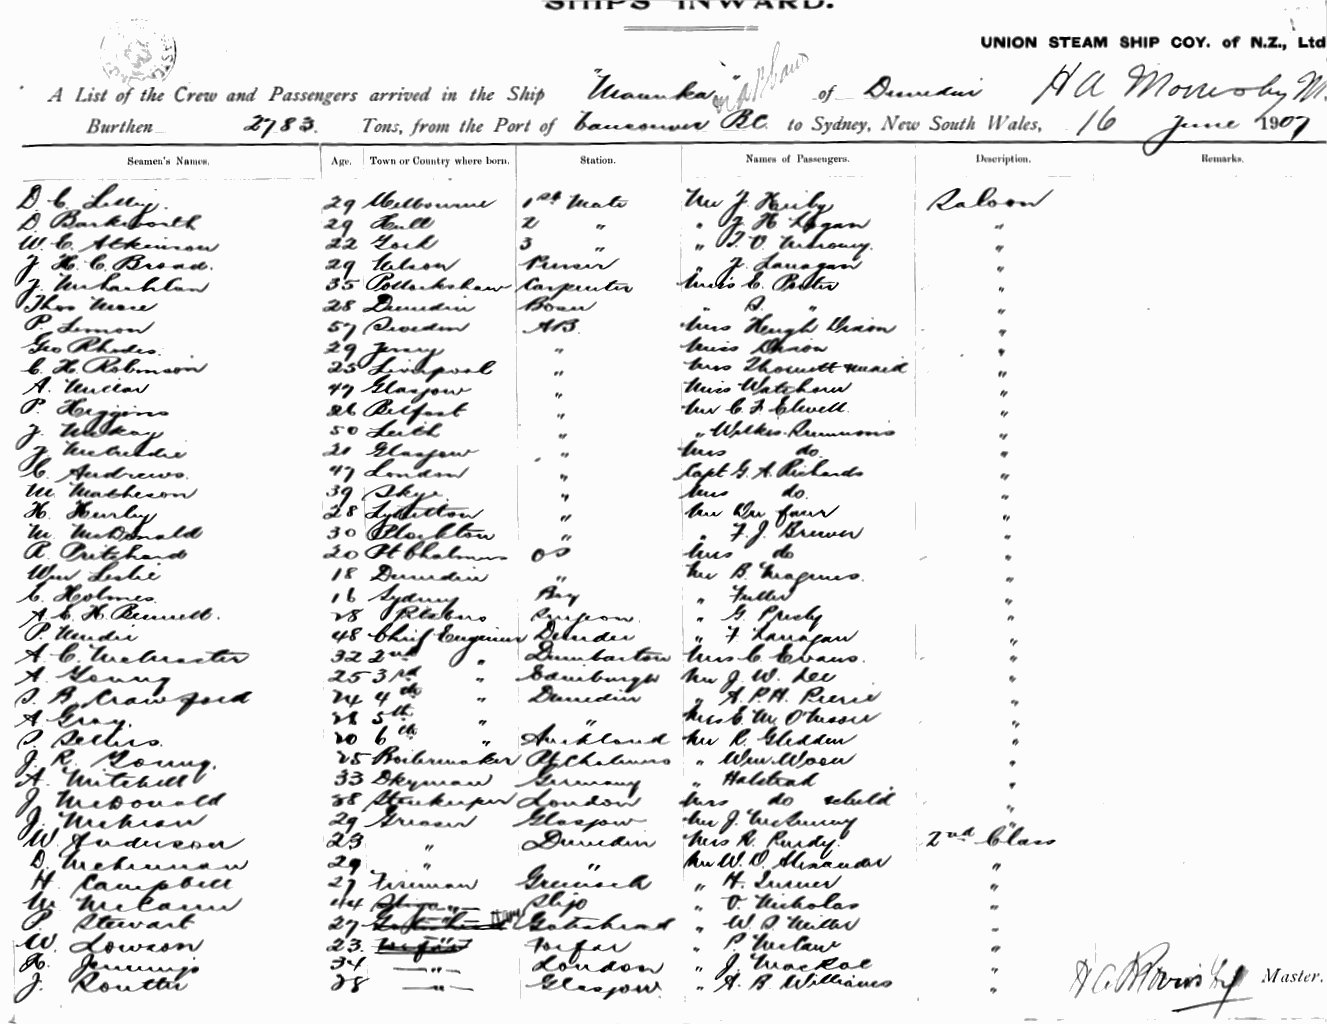 SHIPS INWARD.
UNION STEAM SHIP COY. of N.Z., Ltd
A List of the Crew and Passengers arrived in the Ship "Manuka" of Dunedin H A Moresby M.
Burthen 2783. Tons, from the Port of Vancouver B.C. to Sydney, New South Wales, 16 June 1907
Seamen's Names. Age. Town or Country where born. Station. Names of Passengers. Description. Remarks.
D C Lilley. 29 Melbourne 1st Mate Mr J. Saloon
D Barkworth 29 Hull 2 " " J H Logan "
W. C. Atkinson 22 3 " " T. V. "
J H. C. Broad. 29 Nelson Purser " J. Lanagan "
J. McLachlan 35 Pollockshaws Carpenter Miss E. Porter "
Thos 28 Dunedin Bosun " S. " "
P. Simon 57 Sweden AB. Mrs Hugh Dixon "
Geo Rhodes. 29 Jersey " Miss Dixon "
C. H. Robinson 25 Liverpool " Mrs maid "
A. Millar 47 Glasgow " Miss Watchorn "
P. Higgins 26 Belfast " Mr C. F. Elwell. "
J. McKay 50 Leith " " Wilkes "
J. 21 Glasgow " Mrs do. "
C. Andrews. 47 London " Capt G. A. Richards "
M. Matheson 39 Skye. " Mrs do. "
H. Hurley 28 Lyttelton " Mr "
M. McDonald 30 Plockton " " F. J. Brewer "
R. Pritchard 20 Pt Chalmers OS Mrs do "
Wm Leslie 18 Dunedin " Mr B. Magnus. "
C. Holmes. 16 Sydney Boy " Fuller "
A. C. H. Bennett. 28 Surgeon. " G. Presly "
P. 48 Chief Engineer Dundee " F Lanagan "
A. C. McMaster 32 2nd " Dumbarton Mrs C. Evans. "
A. Young 25 3rd " Edinburgh Mr J. W. Lee "
S. B. Crawford 24 4th " Dunedin " A. P. H. Pierie "
A Gray. 28 5th " " Mrs E. M. O'Moore "
S. Sellers. 20 6th " Auckland Mr R. Glidden "
J. R. Young. 25 Boilermaker Pt Chalmers " Wm. Woon "
A. Mitchell 33 Dkyman Germany " Halstead "
J McDonald 28 Storekeeper London Mrs do & child "
J. McKean 29 Greaser Glasgow Mr J. "
W. Anderson 23 " Dunedin Mrs R. Purdy. 2nd Class
D. McKinnon 29 " " Mr W. D. Alexander "
H. Campbell 27 Fireman Greenock " H. Turner "
M. McCann 44 " Sligo " V. Nicholas "
P. Stewart 27 Gateshead " W. S. Miller "
W. Lowson 23. Forfar " P. McCaw "
H. Jennings 34 " London " J. Mackal "
J. Soutter 28 " Glasgow. " A. B. Williams "
H A Moresby Master.